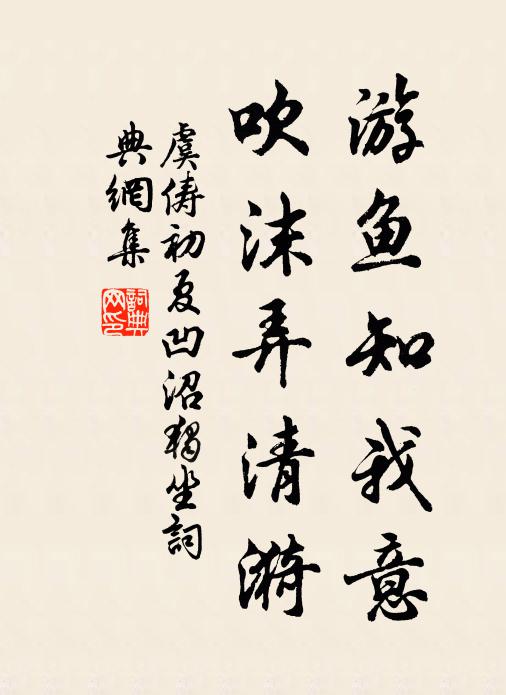 游鱼知我意
吹沫弄清漪
虞俦初夏凹沼独坐詞
典網集
詞典网印